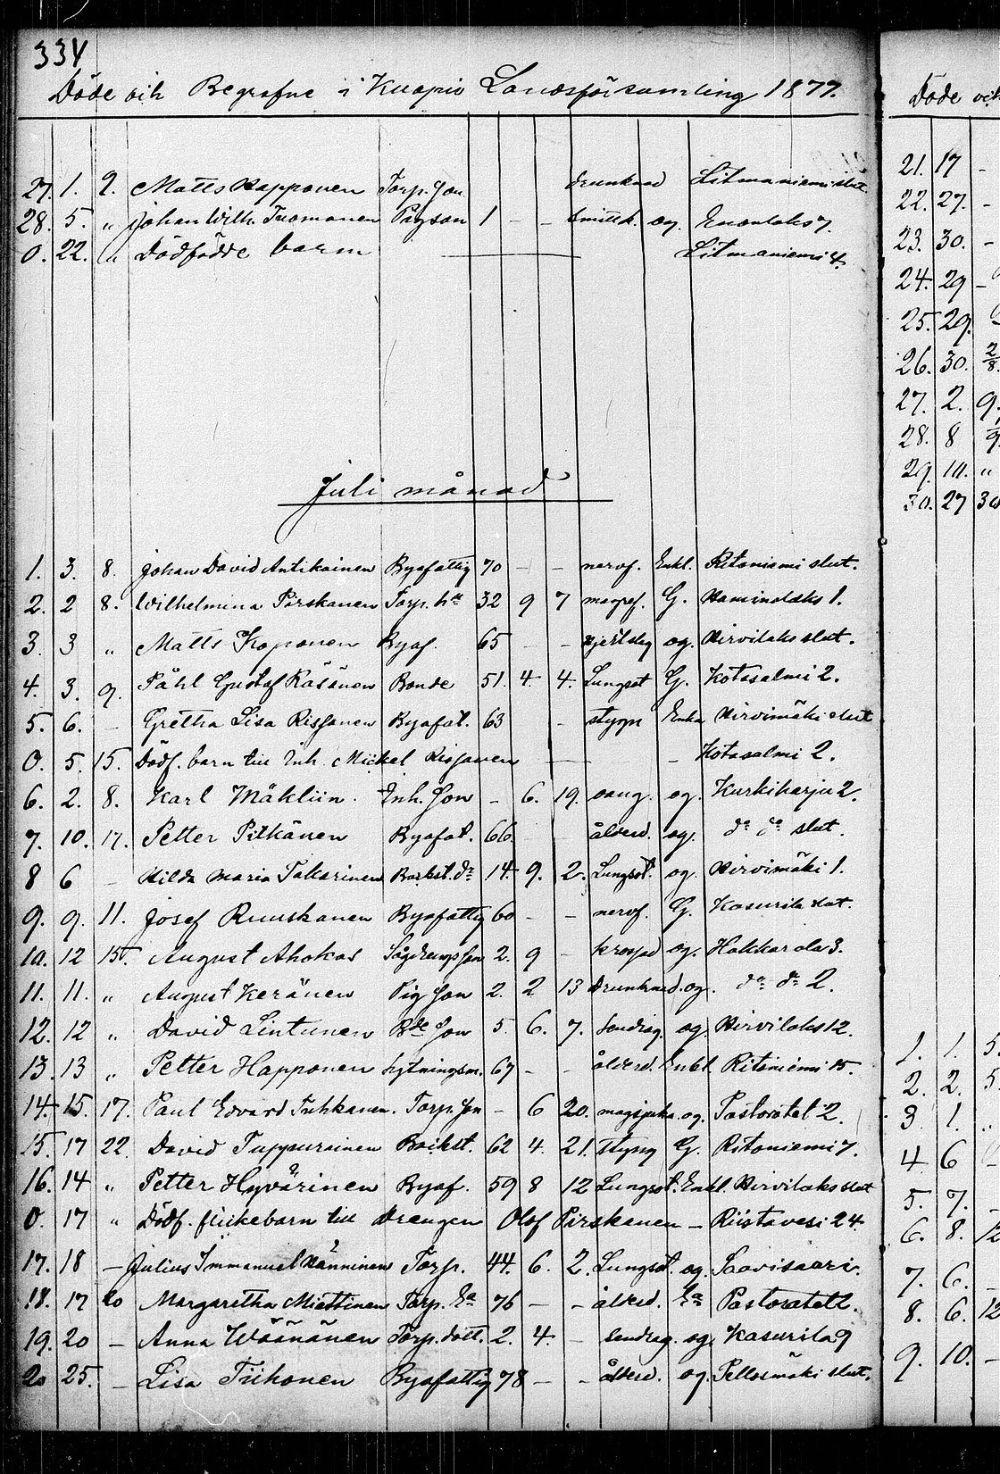 334
Döde och Begrafne i Kuopio Landsförsamling 1877.
27. 1. 9. Matts Kapponen Torp. Son drunknad Litmaniemi slut
28. 5. " Johan Wilh. Tuomanen Pigson 1 - - Smittk. og. Enonlaks 7.
0. 22. " Dödfödde barn Litmaniemi 4.
Juli månad
1. 3. 8. Johan David Antikainen Byafattig 70 - - nervf. Enkl. Ritoniemi slut.
2. 2 8. Wilhelmina Pirskanen Torp. 32 9 7 G. Haminolaks 1.
3. 3 " Matts Koponen Byaf. 65 - og. Hirvilaks slut.
4. 3. 9. Påhl Gustaf Räsänen Bonde 51. 4 4. Lungsot G. Kotasalmi 2.
5. 6. - Gretha Lisa Rissanen Byafat. 63 - styng Enka Hirvimäki slut
0. 5. 15. Dödf. barn till Inh. Mickel Rissanen - Kotasalmi 2.
6. 2. 8. Karl Mäkliin. Inh. Son - 6. 19. og. Kurkiharju 2.
7. 10. 17. Petter Pitkänen Byafat. 66. ålderd. og. do do slut.
8 6 - Hilda Maria Takarinen 14. 9. 2. Lungsot. og. Hirvimäki 1.
9. 9. 11. Josef Ruuskanen Byafattig 60 - - nervf. G. Kasurila slut.
10. 12 15. August Ahokas Son 2. 9 - og. Hakkarala 3.
11. 11. " August Keränen Pig Son 2. 2 13 Drunknad. og. do do 2.
12. 12 " David Lintunen Bde Son 5. 6. 7. Sendrag. og. Hirvilaks 12.
13. 13 " Petter Happonen Hytningsm. 67 - - ålderd. Enkl. Ritoniemi 15.
14. 15. 17. Paul Edvard Tuhkanen. Torp. Son - 6 20. og. Pastoratet 2.
15. 17 22. David Tuppurainen 62 4. 21. Styng G. Ritoniemi 7.
16. 14 " Petter Hyvärinen Byaf. 59 8 12 Lungsot. Enkl. Hirvilaks slut
0. 17 " Dödf. flickebarn till Drengen Olof Pirskanen - Riistavesi 24
17. 18 - Julius Immanuel Hänninen Torp. 44. 6. 2. Lungsot. og. Saavisaari.
18. 17 20 Margaretha Miettinen Torp. Ea 76 - - ålderd. Ea Pastoratet 2.
19. 20 - Anna Wäänänen Torp. dott. 2. 4 - Sendrag. og. Kasurila 9
20 25. - Lisa Tiihonen Byafattig 78 - - ålderd. og. Pellosmäki slut.
Döde och
21. 17 -
22. 27. -
23. 30. -
24. 29 -
25. 29.
26. 30. 2/8.
27. 2. 9.
28. 8
29. 10. "
30. 27 30
1. 1. 5.
2. 2. 5
3 1. "
4 6 -
5. 7. -
6. 8. 12
7. 6. -
8. 6. 12
9. 10. -